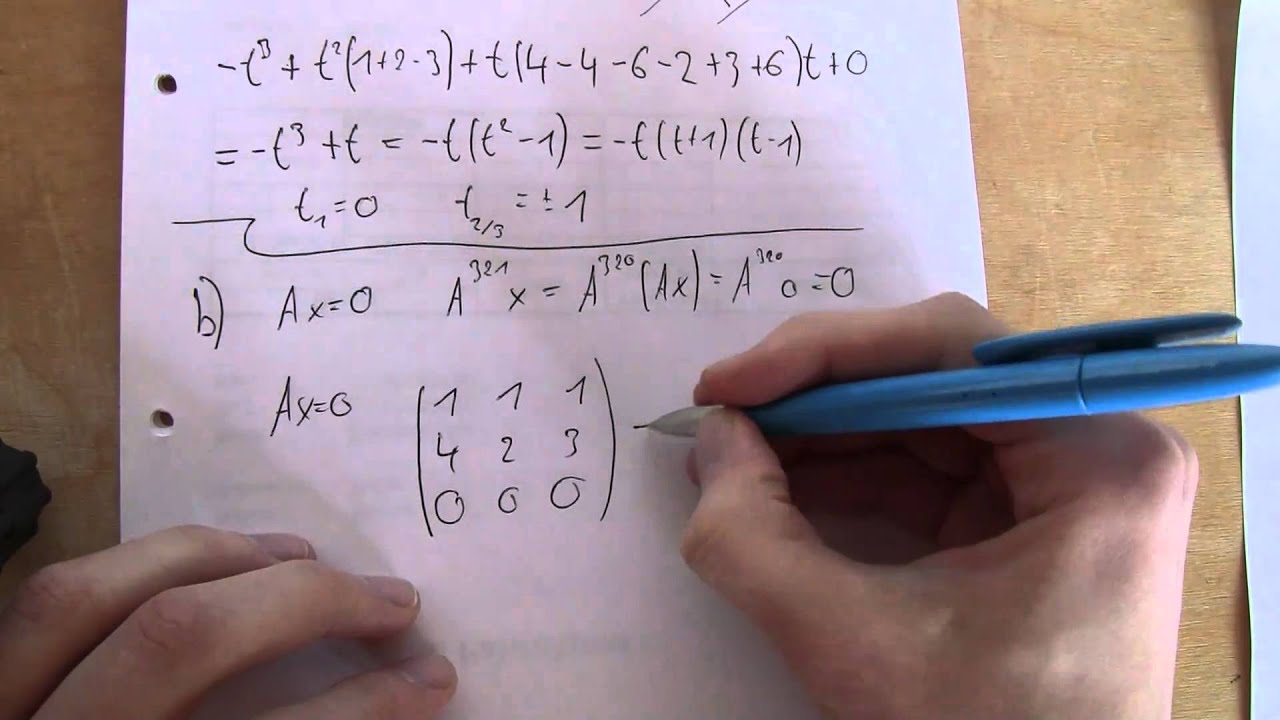 -t³ + t²(1+2-3) + t(4-4-6-2+3+6)t+0
= -t³ + t = -t(t²-1) = -t(t+1)(t-1)
t₁=0 t₂/₃ = ±1
b) Ax=0 A³²¹x = A³²⁰(Ax) = A³²⁰0 = 0
Ax=0 (1 1 1
4 2 3
0 0 0)